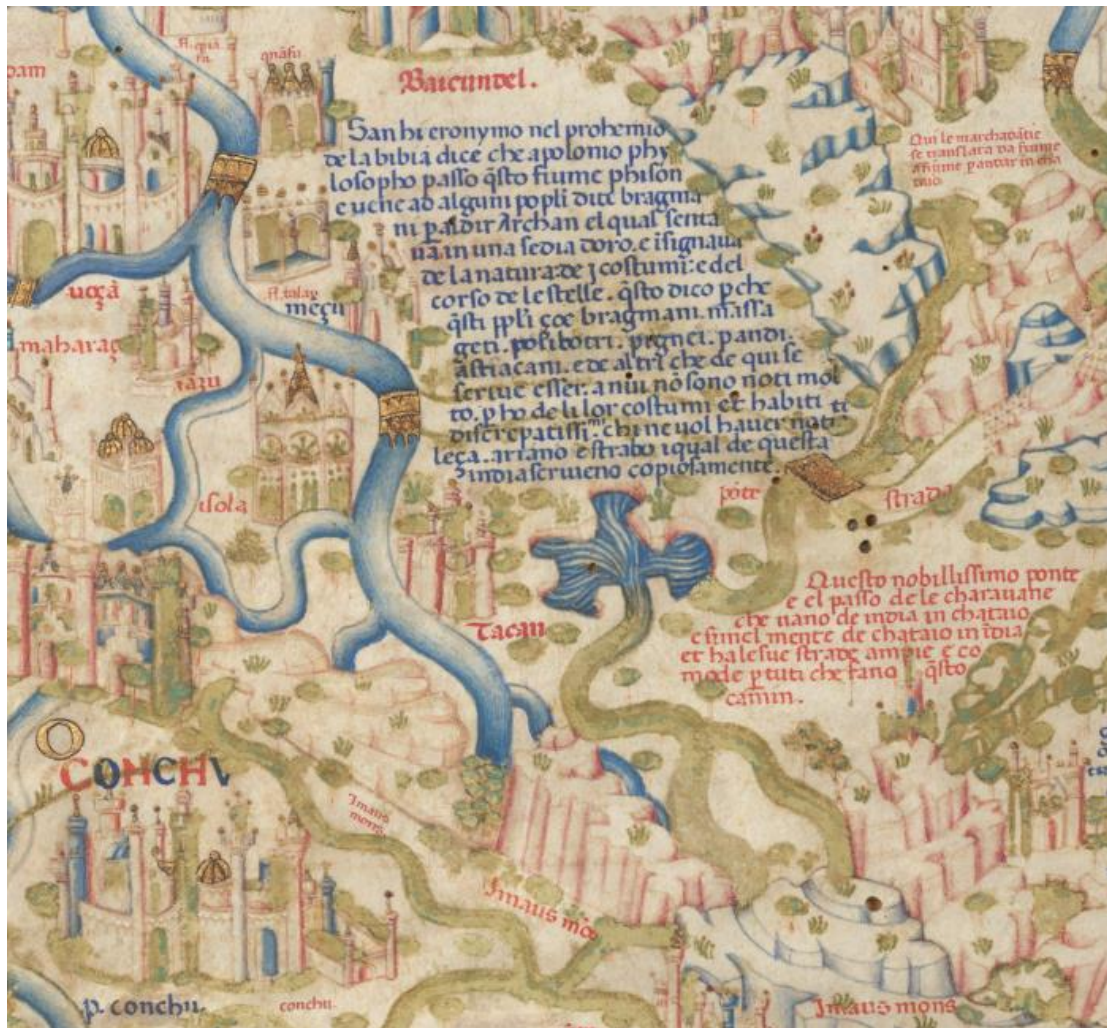 Baicundel.
San hieronymo nel prohemio
de la bibia dice che apolonio phy
losopho passo q̄sto fiume phison
e uene ad alguni popli dite bragma
ni p̱ aldir Archan el qual senta
ua in una sedia doro. e isignaua
de la natura de i costumi: e del
corso de le stelle. q̄sto dico p̱ che
q̄sti ppli çoe bragmani. massa
geti. poliboti. pignei. pandi.
astiacani. e de altri che de qui se
scriue esser. a nui nō sono noti mol
to. p̱ ho de li lor costumi et habiti ti
discrepatissi. chi ne uol hauer noti
leça. ariano e strabo i qual de questa
india scriueno copiosamente.
Qui le marchadātie
se translata da fiume
a fiume p̱ andar in cha
taio
uçça
meçu
maharaç
isola
pōte
strada
Tacan
Questo nobillissimo ponte
e el passo de le charauane
che uano de india in chataio
e simel mente de chataio in īdia
et ha le sue strade ampie e co
mode p̱ tuti che fano q̄sto
camin.
CONCHV
Imaus
mons.
Imaus mōs
p. conchu.
conchu.
Imaus mons